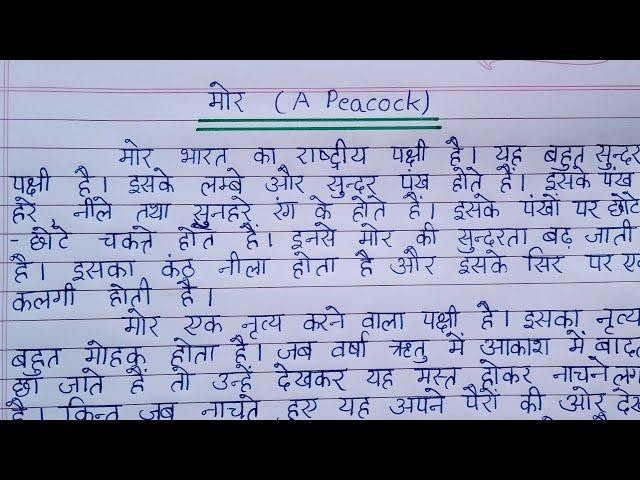 मोर (A Peacock)
मोर भारत का राष्ट्रीय पक्षी है। यह बहुत सुन्दर
पक्षी है। इसके लम्बे और सुन्दर पंख होते हैं। इसके पंख
हरे, नीले तथा सुनहरे रंग के होते हैं। इसके पंखों पर छोटे
- छोटे चकत्ते होते हैं। इनसे मोर की सुन्दरता बढ़ जाती
है। इसका कंठ नीला होता है और इसके सिर पर
कलगी होती है।
मोर एक नृत्य करने वाला पक्षी है। इसका नृत्य
बहुत मोहक होता है। जब वर्षा ऋतु में आकाश में
छा जाते हैं तो उन्हें देखकर यह मस्त होकर नाचने
है। किन्तु जब नाचते हुए यह अपने पैरों की ओर